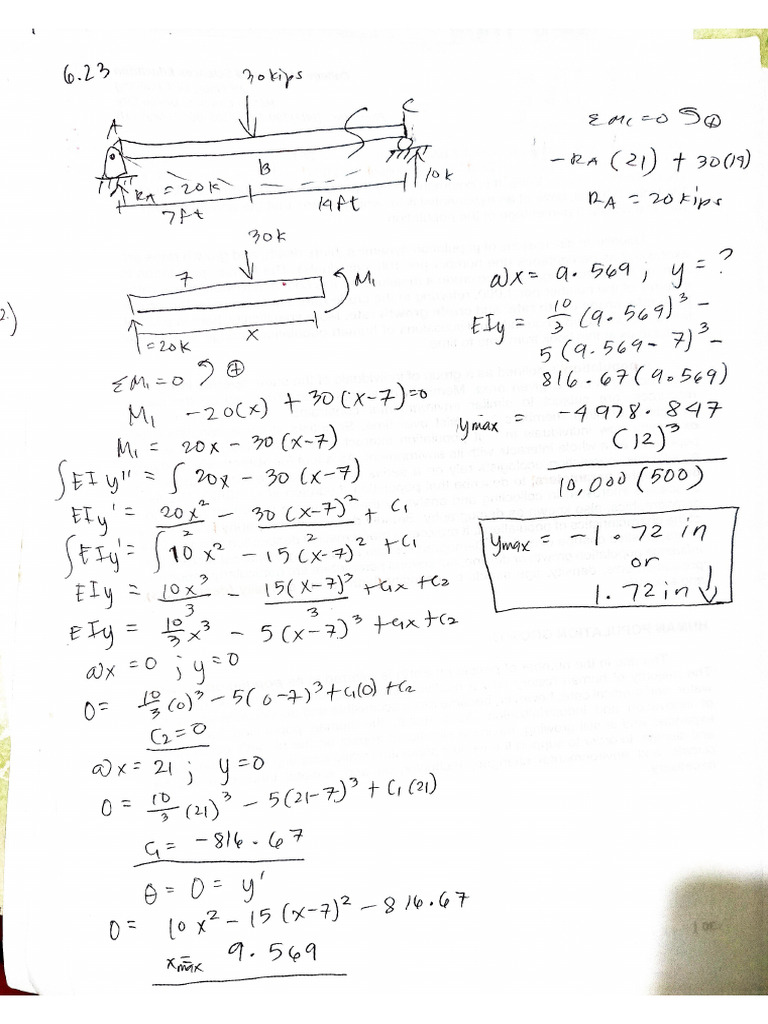 6.23
30kips
A
C
B
RA = 20k
10k
7ft
14ft
ΣMc=0 ↺⊕
-RA(21) + 30(19)
RA = 20kips
30k
7
M₁
x
=20k
2.)
ΣM₁=0 ↺ ⊕
M₁ -20(x) + 30(x-7)=0
M₁ = 20x - 30(x-7)
∫EIy'' = ∫20x - 30(x-7)
EIy' = 20x²/2 - 30(x-7)²/2 + C₁
∫EIy' = ∫10x² - 15(x-7)² + C₁
EIy = 10x³/3 - 15(x-7)³/3 + C₁x + C₂
EIy = 10/3 x³ - 5(x-7)³ + C₁x + C₂
@x=0 ; y=0
0= 10/3 (0)³ - 5(0-7)³ + C₁(0) + C₂
C₂=0
@x= 21 ; y=0
0= 10/3 (21)³ - 5(21-7)³ + C₁(21)
C₁= -816.67
θ = 0 = y'
0= 10x² - 15(x-7)² - 816.67
xmax= 9.569
@x= 9.569 ; y=?
EIy = 10/3 (9.569)³ -
5(9.569-7)³ -
816.67(9.569)
ymax = -4978.847
(12)³
10,000(500)
ymax = -1.72 in
or
1.72in ↓